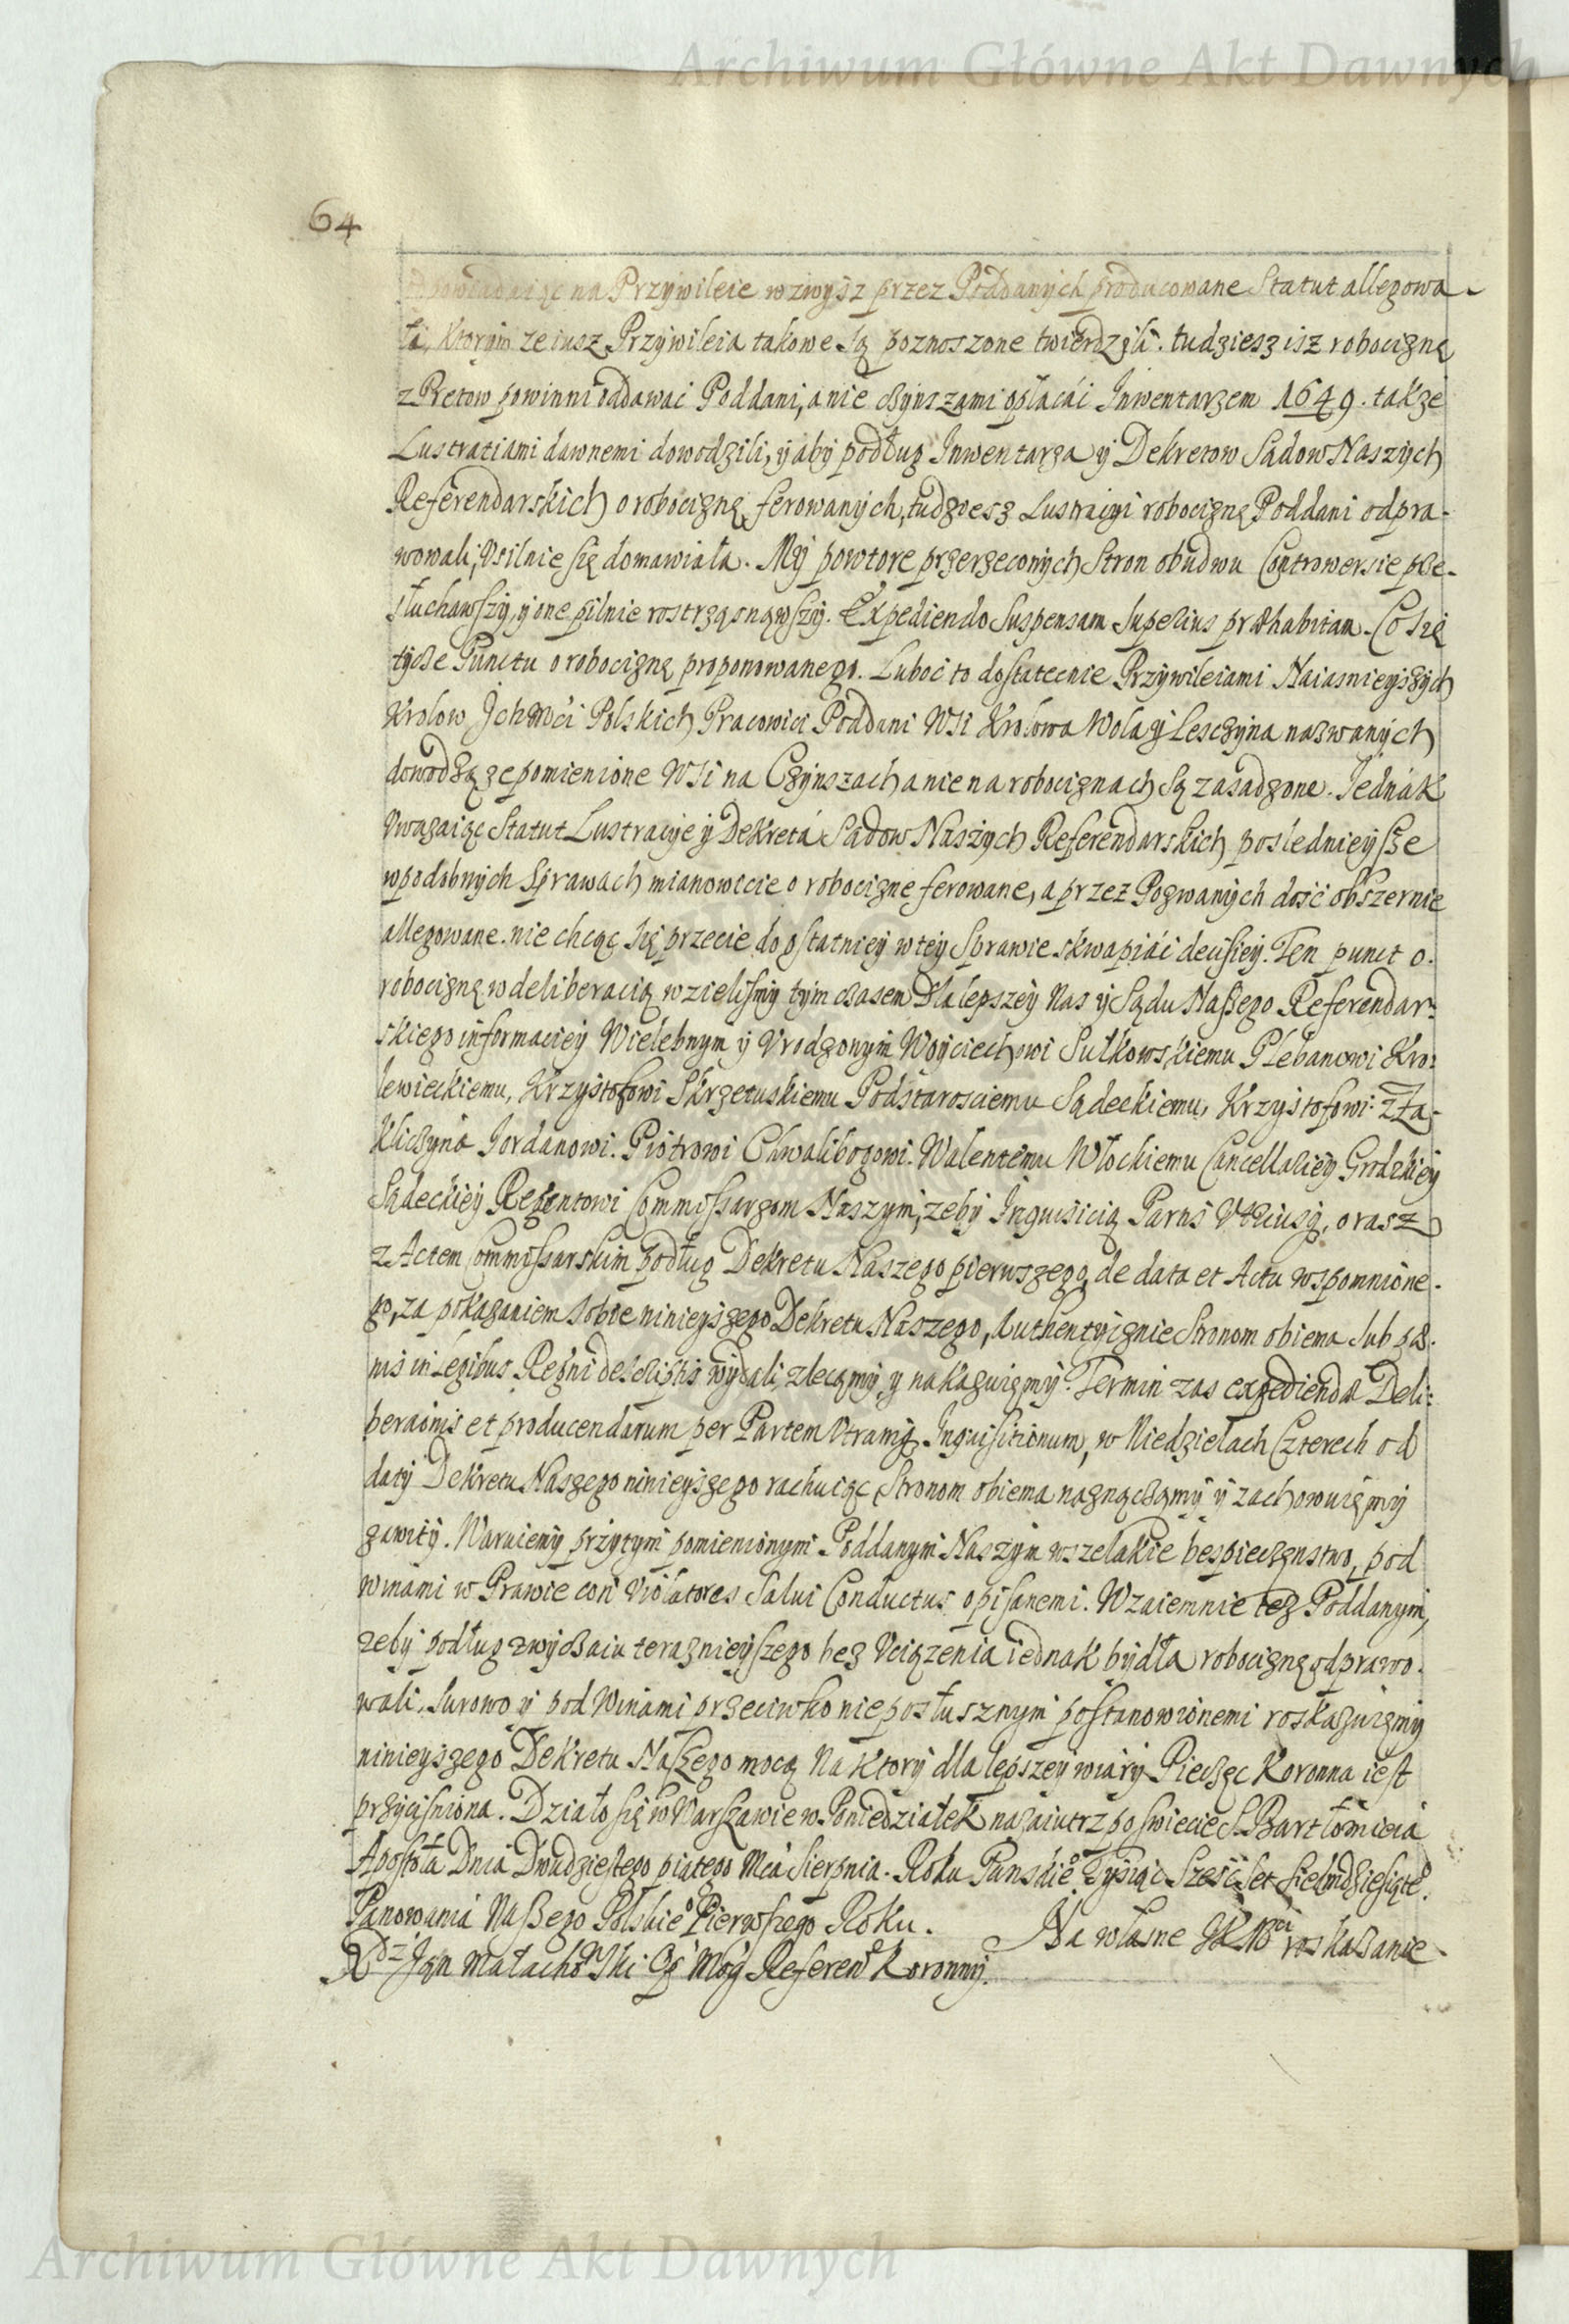 Archiwum Główne Akt Dawnych
64
Odpowiadaiąc na Przywileie wzwysz przez Poddanych producowane Statut allegowa-
ła, Ktorym ze iusz Przywileia takowe są poznoszone twierdzyli. tudziesz isz robociznę
z Pretow powinni oddawać Poddani, a nie czynszami opłacáć Inwentarzem 1649. takze
Lustratiami dawnemi dowodzili, y aby podług Inwentarza y Dekretow Sądow Naszych
Referendarskich o robociznę ferowanych, tudziesz Lustracyi robociznę Poddani odpra-
wowali, Vsilnie się domawiała. My powtore przerzeconych Stron obudwu Controwersie prze-
słuchawszy, y one pilnie rostrząsnąwszy. Expediendo Suspensam Superius præhabitam. Co się
tycze Punctu o robociznę proponowanego. Luboć to dostatecnie Przywileiami Naiasnieyszych
Krolow Ichmći Polskich Pracowici Poddani WSi Krolowa Wola y Lesczyna nazwanych
dowodzą ze pomienione WSi na Czynszach a nie na robociznach są zasadzone. Iednák
Vwazaiąc Statut Lustracye y Dekretá Sądow Naszych Referendarskich poslednieysze
w podobnych Sprawach mianowicie o robocizne ferowane, a przez Pozwanych dość obszernie
allegowane. nie chcąc się przecie do ostatniey w tey Sprawie skwapiáć decisiey. Ten punct o
robociznę w deliberacią wzielismy tym czasem Dla lepszey Nas y Sądu Naszego Referendar-
skiego informaciey Wielebnym y Vrodzonym Woyciechowi Sułkowskiemu Plebanowi Kro-
lewieckiemu, Krzysztofowi Skrzetuskiemu Podstarosciemu Sądeckiemu, Krzysztofowi z Za-
kliczyna Iordanowi. Piotrowi Chwalibogowi. Walentemu Włockiemu Cancellariey Grodzkiey
Sądeckiey Regentowi Commissarzom Naszym, zeby Inquisicią Partis Vtriusq, orasz
z Actem Commissarskim podług Dekretu Naszego pierwszego, de data et Actu wspomnione-
go, za pokazaniem sobie ninieyszego Dekretu Naszego, Authentycznie Stronom obiema sub pæ-
nis in Legibus Regni descriptis wydali, zlecamy, y nakazuiemy. Termin zas expediendæ Deli-
beraonis et producendarum per Partem Vtramq. Inquisitionum, w Niedzielach Czterech od
daty Dekretu Naszego ninieyszego rachuiąc Stronom obiema naznaczamy y zachowuiemy
zawity. Waruiemy przytym pomienionym Poddanym Naszym wszelakie bespieczenstwo, pod
winami w Prawie con Violatores Salui Conductus opisanemi. Wzaiemnie tez Poddanym,
zeby podług zwyczaiu teraznieyszego bez Vciązenia iednak bydła robociznę odprawo-
wali, surowo y pod Winami przeciwko nieposłusznym postanowionemi roskazuiemy
ninieyszego Dekretu Naszego mocą Na ktory dla lepszey wiary Pieczęc Koronna iest
przycisniona. Działo się w Warszawie w Poniedziałek nazaiutrz po swiecie S. Bartłomieia
Apostoła Dnia Dwudziestego piątego Mca Sierpnia. Roku Panskieo Tysiąc Szesć Set Siedmdziesiąteo.
Panowania Naszego Polskieo Pierwszego Roku. Na własne JKMci roskazanie
Xdz Jan Małachowski Referend Koronny.
Archiwum Główne Akt Dawnych